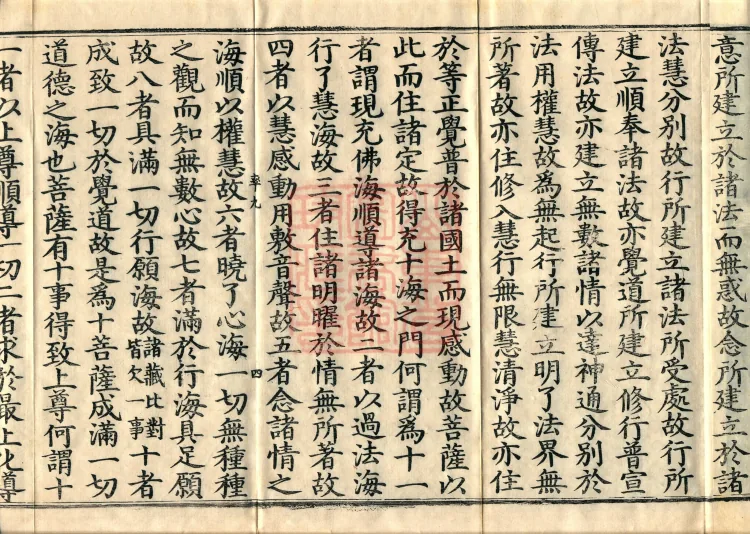 意所建立於諸法而無惑故念所建立於諸
法慧分別故行所建立諸法所受處故行所
建立順奉諸法故亦覺道所建立修行普宣
傳法故亦建立無數諸情以達神通分別於
法用權慧故為無起行所建立明了法界無
所著故亦住修入慧行無限慧清淨故亦住
於等正覺普於諸國土而現感動故菩薩以
此而住諸定故得充十海之門何謂為十一
者謂現充佛海順導諸海故二者以過法海
行了慧海故三者住諸明曜於情無所著故
四者以慧感動用敷音聲故五者念諸情之
海順以權慧故六者曉了心海一切無種種
之觀而知無數心故七者滿於行海具足願
故八者具滿一切行願海故諸藏比對皆欠一事十者
成致一切於覺道故是為十菩薩成滿一切
道德之海也菩薩有十事得致上尊何謂十
一者以上尊順尊一切二者求於最上化導
四